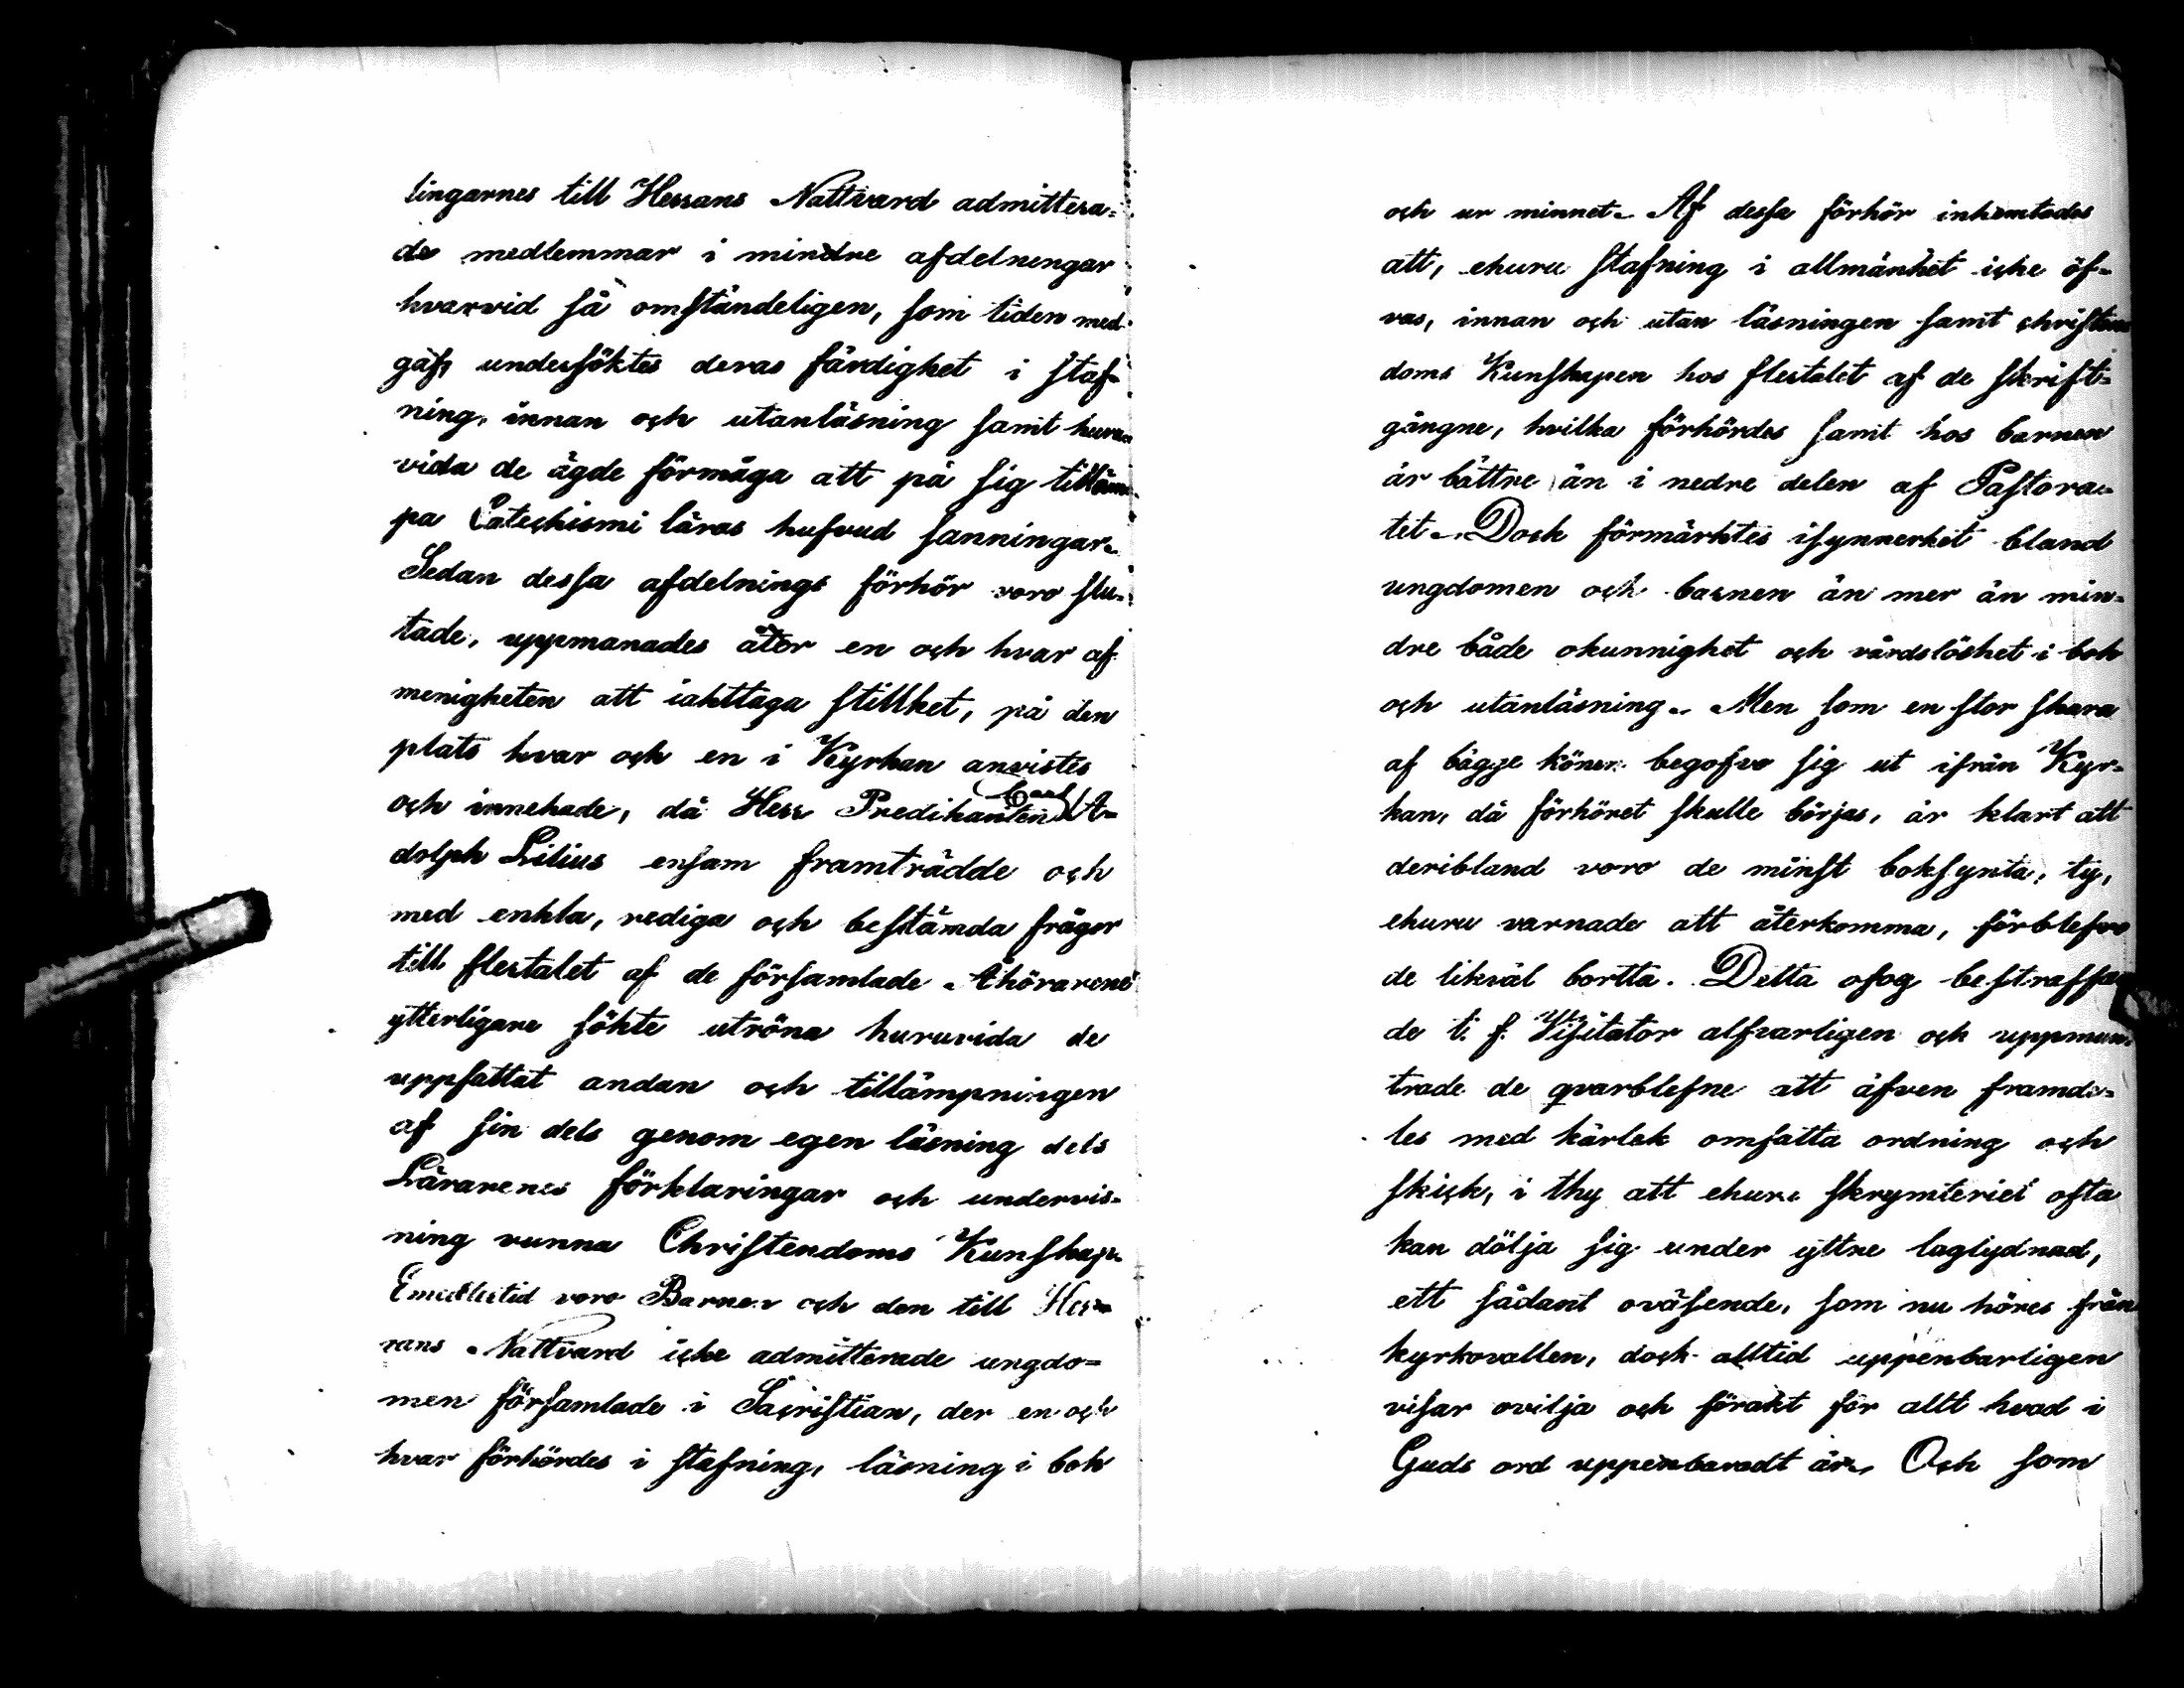 lingarnes till Herrans Nattvard admittera-
de medlemmar i mindre afdelnengar
hvarvid så omständeligen, som tiden med-
gaf, undersöktes deras färdighet i staf-
ning, innan och utanläsning samt huru
vida de ägde förmåga att på sig tilläm-
pa Catechismi läras hufvud sanningar.
Sedan dessa afdelnings förhör voro slu-
tade, uppmanades åter en och hvar af
menigheten att iakttaga stillhet, på den
plats hvar och en i Kyrkan anvistes
och innehade, då Herr Predikanten Carl A-
dolph Lilius ensam framträdde och
med enkla, rediga och bestämda frågor
till flertalet af de församlade Åhörarene
ytterligare sökte utröna huruvida de
uppfattat andan och tillämpningen
af sin dels genom egen läsning dels
Lärarenes förklaringar och undervis-
ning vunna Christendoms Kunskap.
Emedlertid voro Barnen och den till Her-
rans Nattvard icke admitterade ungdo-
men församlade i Sacristian, der en och
hvar förhördes i stafning, läsning i bok
och ur minnet. Af dessa förhör inhemtades
att, ehuru stafning i allmänhet icke öf-
vas, innan och utan läsningen samt christen
doms Kunskapen hos flertalet af de skrift-
gångne, hvilka förhördes samt hos barnen
är bättre än i nedre delen af Pastora-
tet. Dock förmärktes isynnerhet bland
ungdomen och barnen än mer än min-
dre både okunnighet och vårdslöshet i bok
och utanläsning. Men som en stor skara
af bägge könen begofvo sig ut ifrån Kyr-
kan, då förhöret skulle börjas, är klart att
deribland voro de minst boksynta, ty,
ehuru varnade att återkomma, förblefvo
de likväl bortta. Detta ofog bestraffa
de t. f. Visitator alfvarligen och uppmun-
trade de qvarblefne att äfven framde-
les med kärlek omfatta ordning och
skick, i thy att ehuru skrymteriet ofta
kan dölja sig under yttre laglydnad,
ett sådant oväsende, som nu höres från
kyrkovallen, dock alltid uppenbarligen
visar ovilja och förakt för allt hvad i
Guds ord uppenbaradt är. Och som